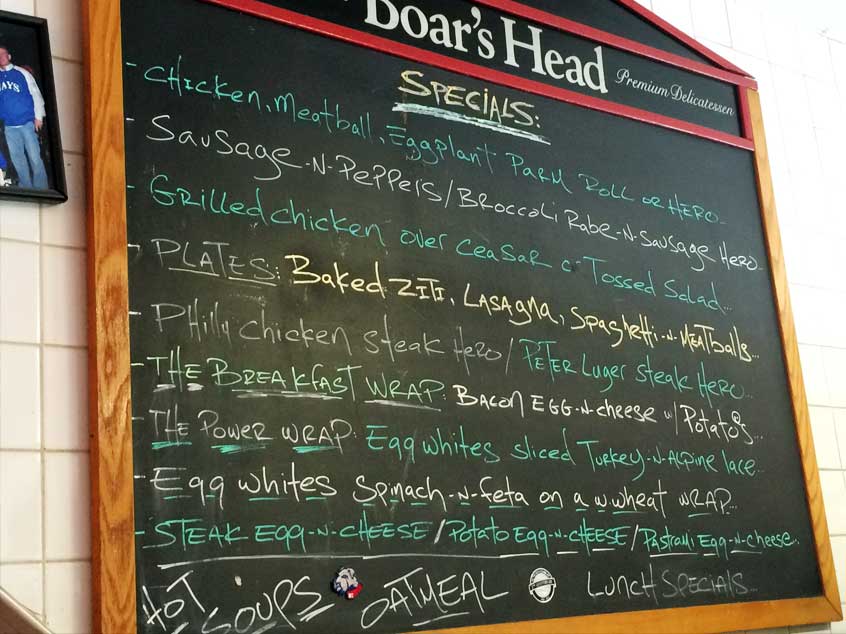 Boar's Head Premium Delicatessen
SPECIALS:
- Chicken, Meatball, Eggplant Parm Roll or Hero..
- Sausage-n-Peppers/Broccoli Rabe-n-Sausage Hero..
- Grilled chicken over Ceasar or Tossed Salad...
- PLATES: Baked Ziti, Lasagna, Spaghetti-n-Meatballs...
- Philly Chicken Steak Hero/Peter Luger Steak Hero...
- The Breakfast Wrap: Bacon Egg-n-Cheese w/Potato's...
- The Power Wrap: Egg whites sliced Turkey-n-Alpine lace..
- Egg whites spinach-n-feta on a w.wheat wrap...
- Steak Egg-n-Cheese/Potato Egg-n-Cheese/Pastrami Egg-n-cheese..
Hot Soups OATMEAL Lunch Specials...